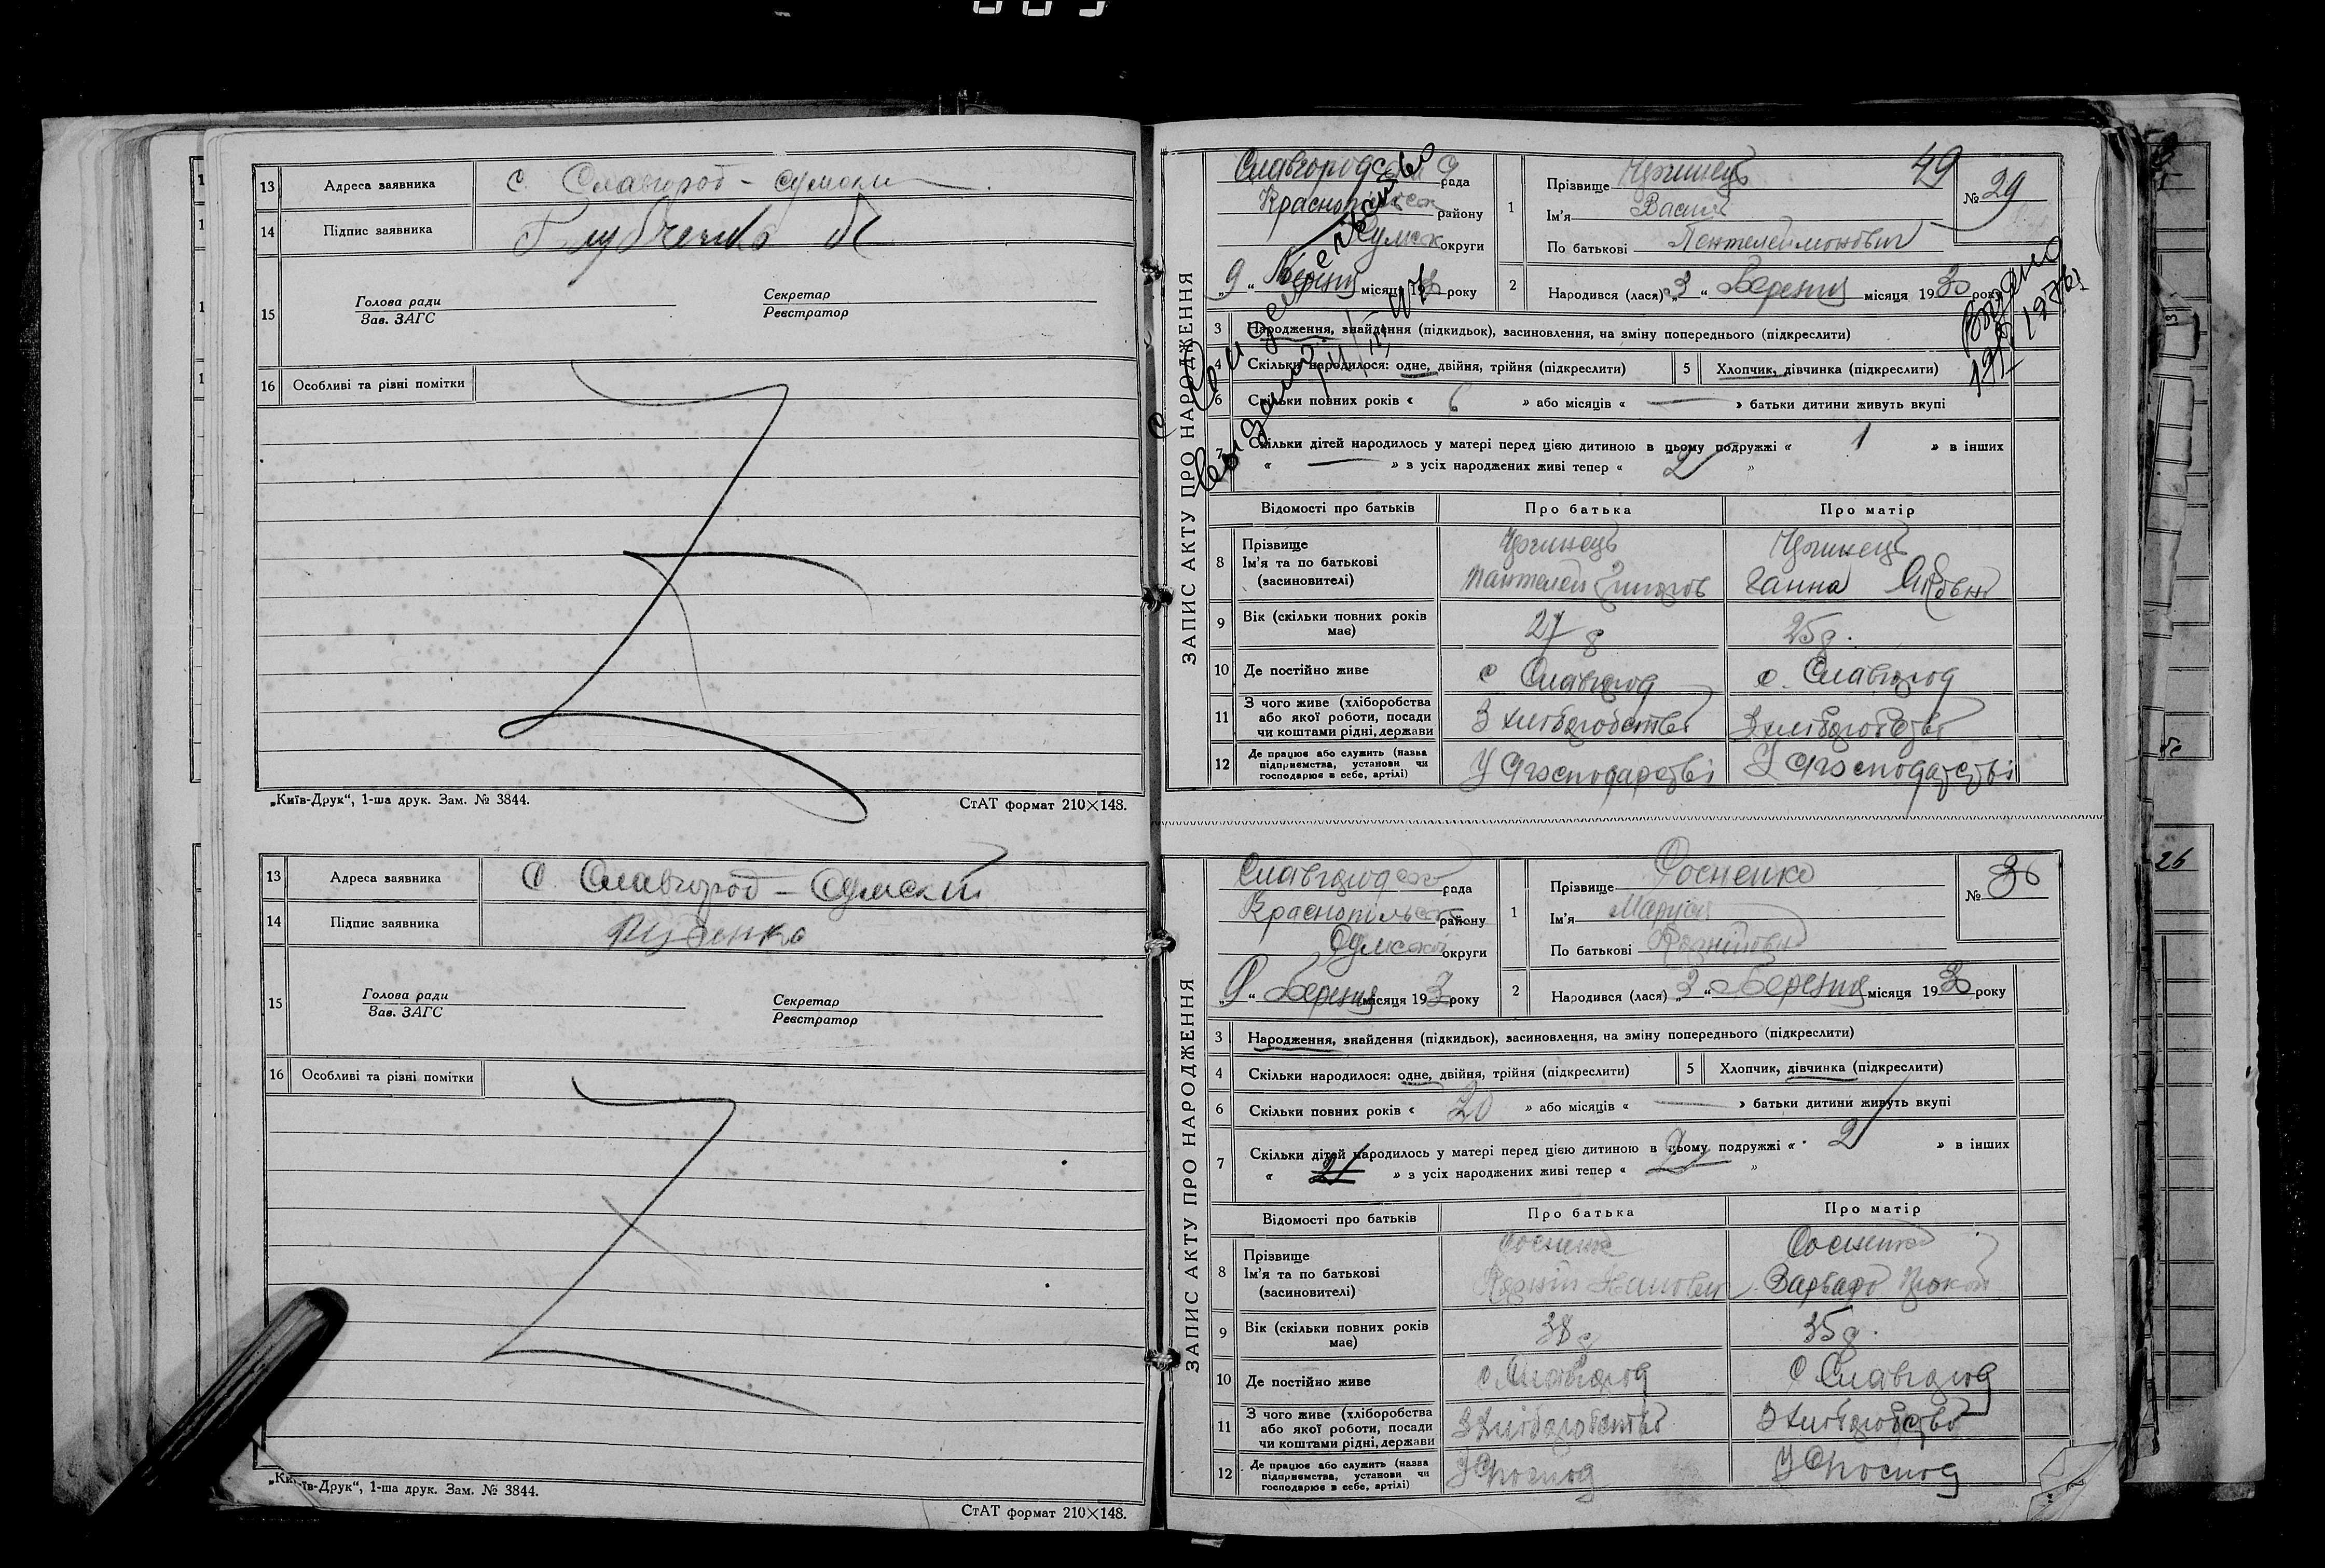 13 Адреса заявника с. Славгород - Сумськи
14 Підпис заявника
15 Голова ради Секретар
Зав. ЗАГС Реєстратор
16 Особливі та різні помітки
„Київ-Друк“, 1-ша друк. Зам. № 3844. СтАТ формат 210×148.
13 Адреса заявника С. Славгород - Сумский
14 Підпис заявника Руденко
15 Голова ради Секретар
Зав. ЗАГС Реєстратор
16 Особливі та різні помітки
„Київ-Друк“, 1-ша друк. Зам. № 3844.
СтАТ формат 210×148.
ЗАПИС АКТУ ПРО НАРОДЖЕННЯ
49
рада
Краснопільск району
Сумск округи
„9“ Березня місяця 19 року
1 Прізвище
Ім'я Васил
По батькові Пантелеймонович
№ 29
2 Народився (лася) „3“ Березня місяця 1930 року
3 Народження, знайдення (підкидьок), засиновлення, на зміну попереднього (підкреслити)
4 Скільки народилося: одне, двійня, трійня (підкреслити) 5 Хлопчик, дівчинка (підкреслити)
6 Скільки повних років « 6 » або місяців « — » батьки дитини живуть вкупі
7 Скільки дітей народилось у матері перед цією дитиною в цьому подружжі « 1 » в інших
« — » з усіх народжених живі тепер « 2 »
Відомості про батьків Про батька Про матір
8 Прізвище
Ім'я та по батькові Пантелей Ганна
(засиновителі)
9 Вік (скільки повних років має) 27 р 25 р.
10 Де постійно живе с Славгород с. Славгород
11 З чого живе (хліборобства або якої роботи, посади чи коштами рідні, держави З хліборобства З хліборобства
12 Де працює або служить (назва підприємства, установи чи господарює в себе, артілі) У С/господарстві У С/господарстві
ЗАПИС АКТУ ПРО НАРОДЖЕННЯ
Славгородск рада
Краснопільськ району
Сумскої округи
„9“ Березня місяця 193 року
1 Прізвище Сосненко
Ім'я Маруся
По батькові
№ 30
2 Народився (лася) „3“ Березня місяця 1930 року
3 Народження, знайдення (підкидьок), засиновлення, на зміну попереднього (підкреслити)
4 Скільки народилося: одне, двійня, трійня (підкреслити) 5 Хлопчик, дівчинка (підкреслити)
6 Скільки повних років « 20 » або місяців « — » батьки дитини живуть вкупі
7 Скільки дітей народилось у матері перед цією дитиною в цьому подружжі « 2 » в інших
« » з усіх народжених живі тепер « »
Відомості про батьків Про батька Про матір
8 Прізвище Сосненко Сосненко
Ім'я та по батькові Варвара Прокоп
(засиновителі)
9 Вік (скільки повних років має) 38 р 35 р.
10 Де постійно живе с Славгород с Славгород
11 З чого живе (хліборобства або якої роботи, посади чи коштами рідні, держави З хліборобства З хліборобства
12 Де працює або служить (назва підприємства, установи чи господарює в себе, артілі) У С/господ У С/господ